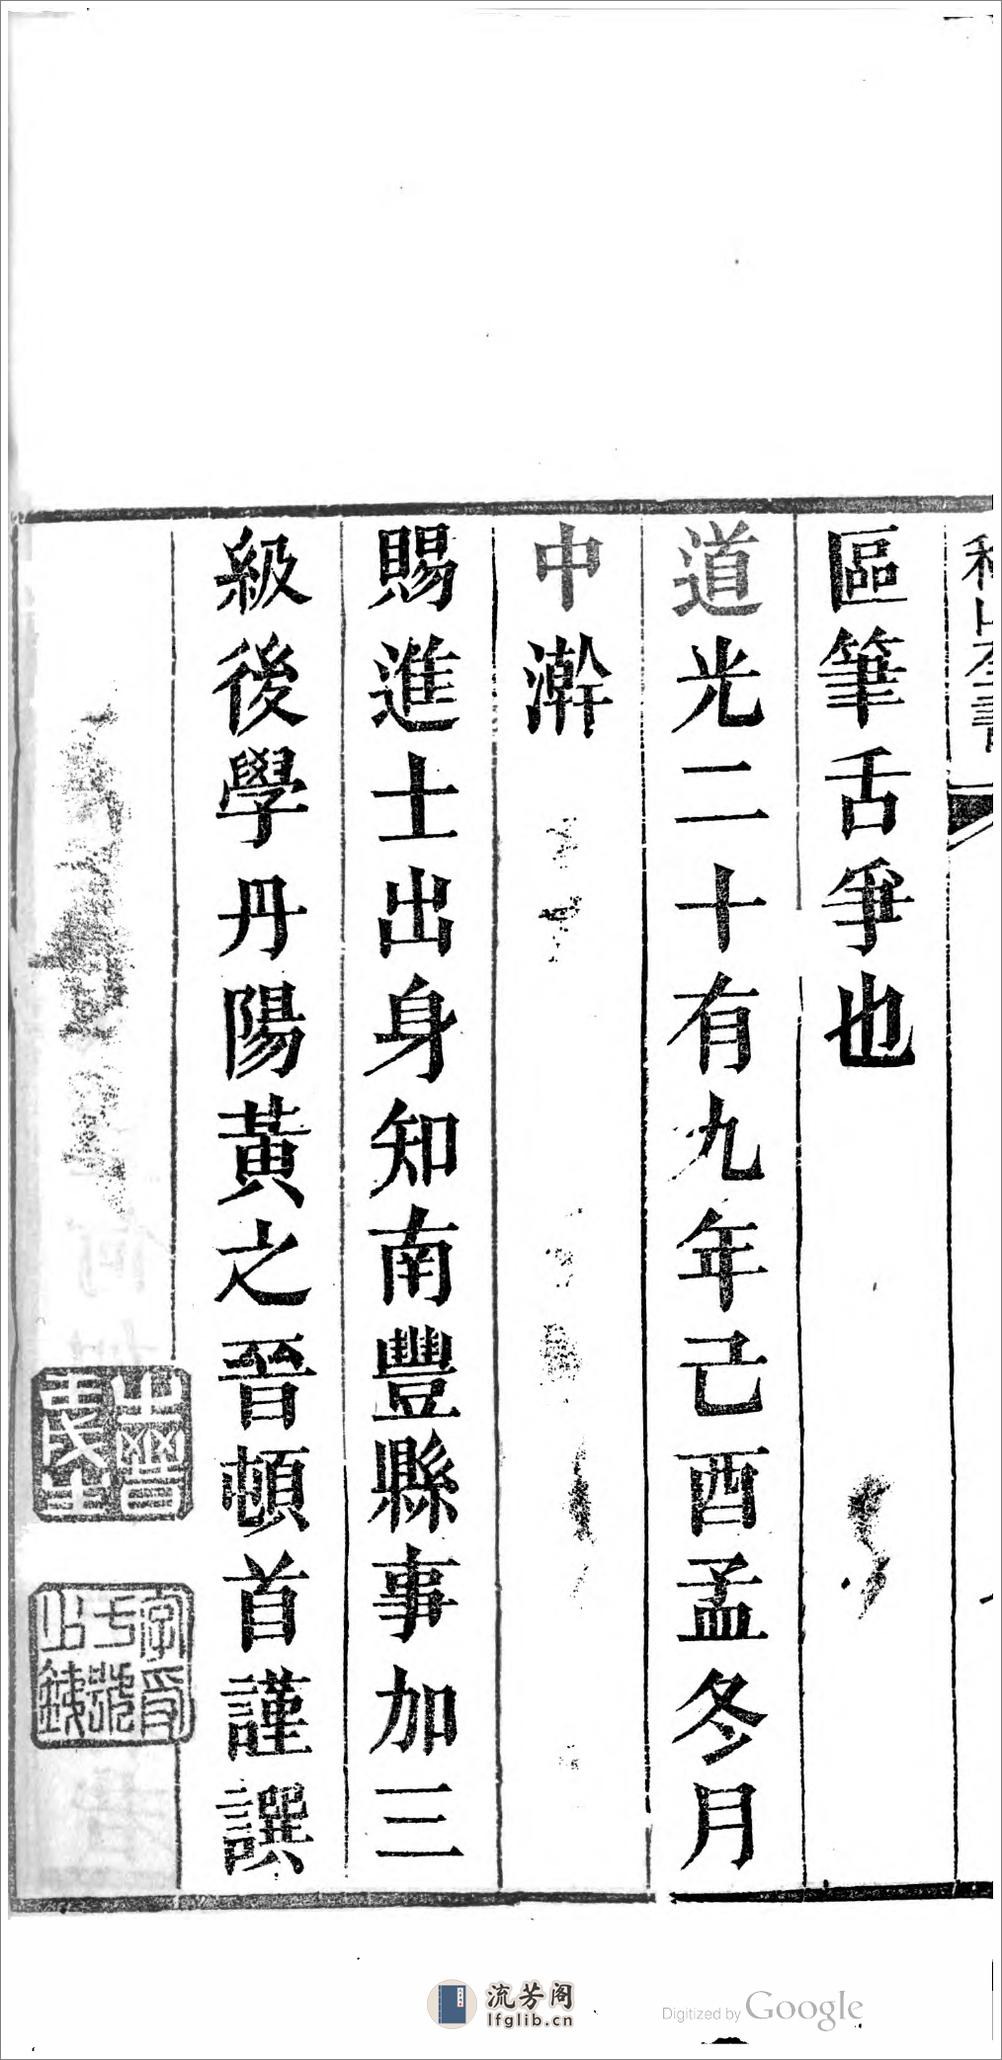 區筆舌爭也
道光二十有九年己酉孟冬月
中澣
賜進士出身知南豐縣事加三
級後學丹陽黃之晉頓首謹譔
流芳阁
lfglib.cn
Digitized by Google